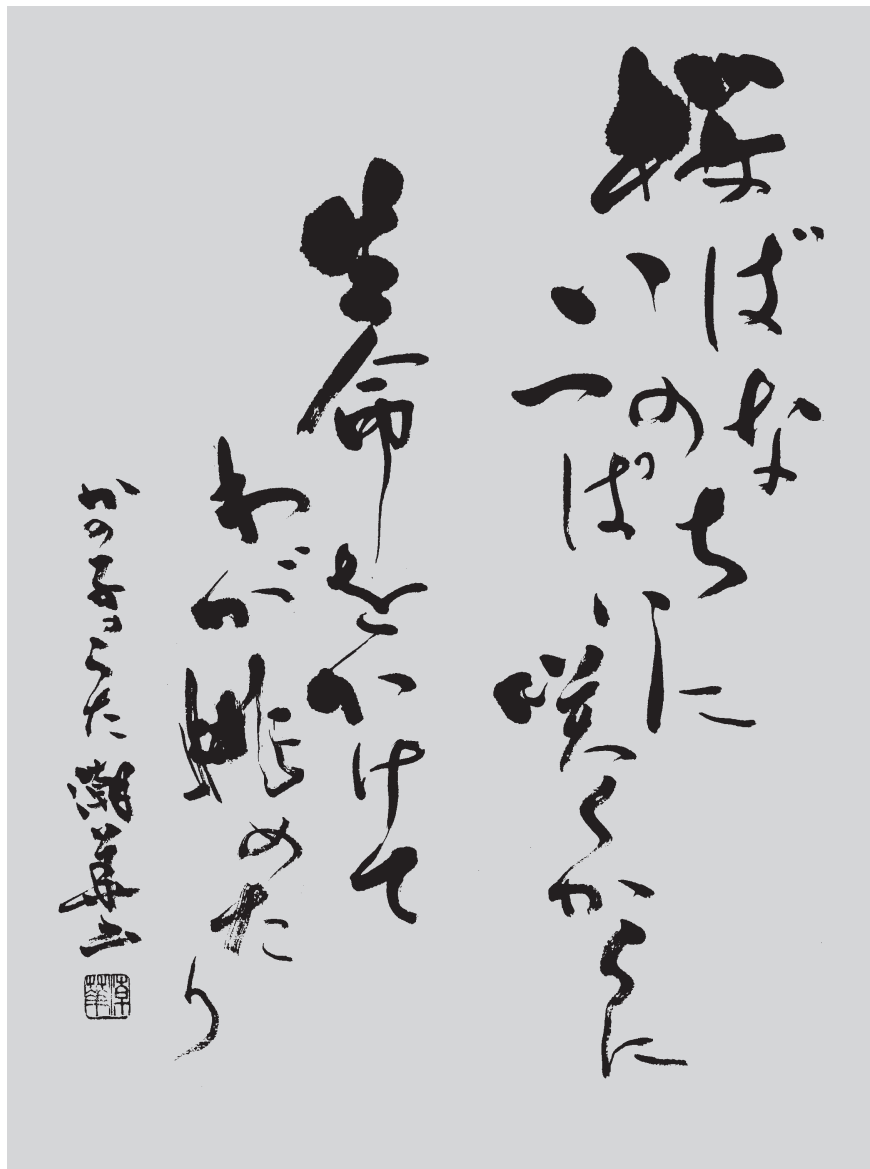 桜ばな
いのち
一ぱいに
咲くからに
生命をかけて
わが眺めたり
かの子のうた 潮華書